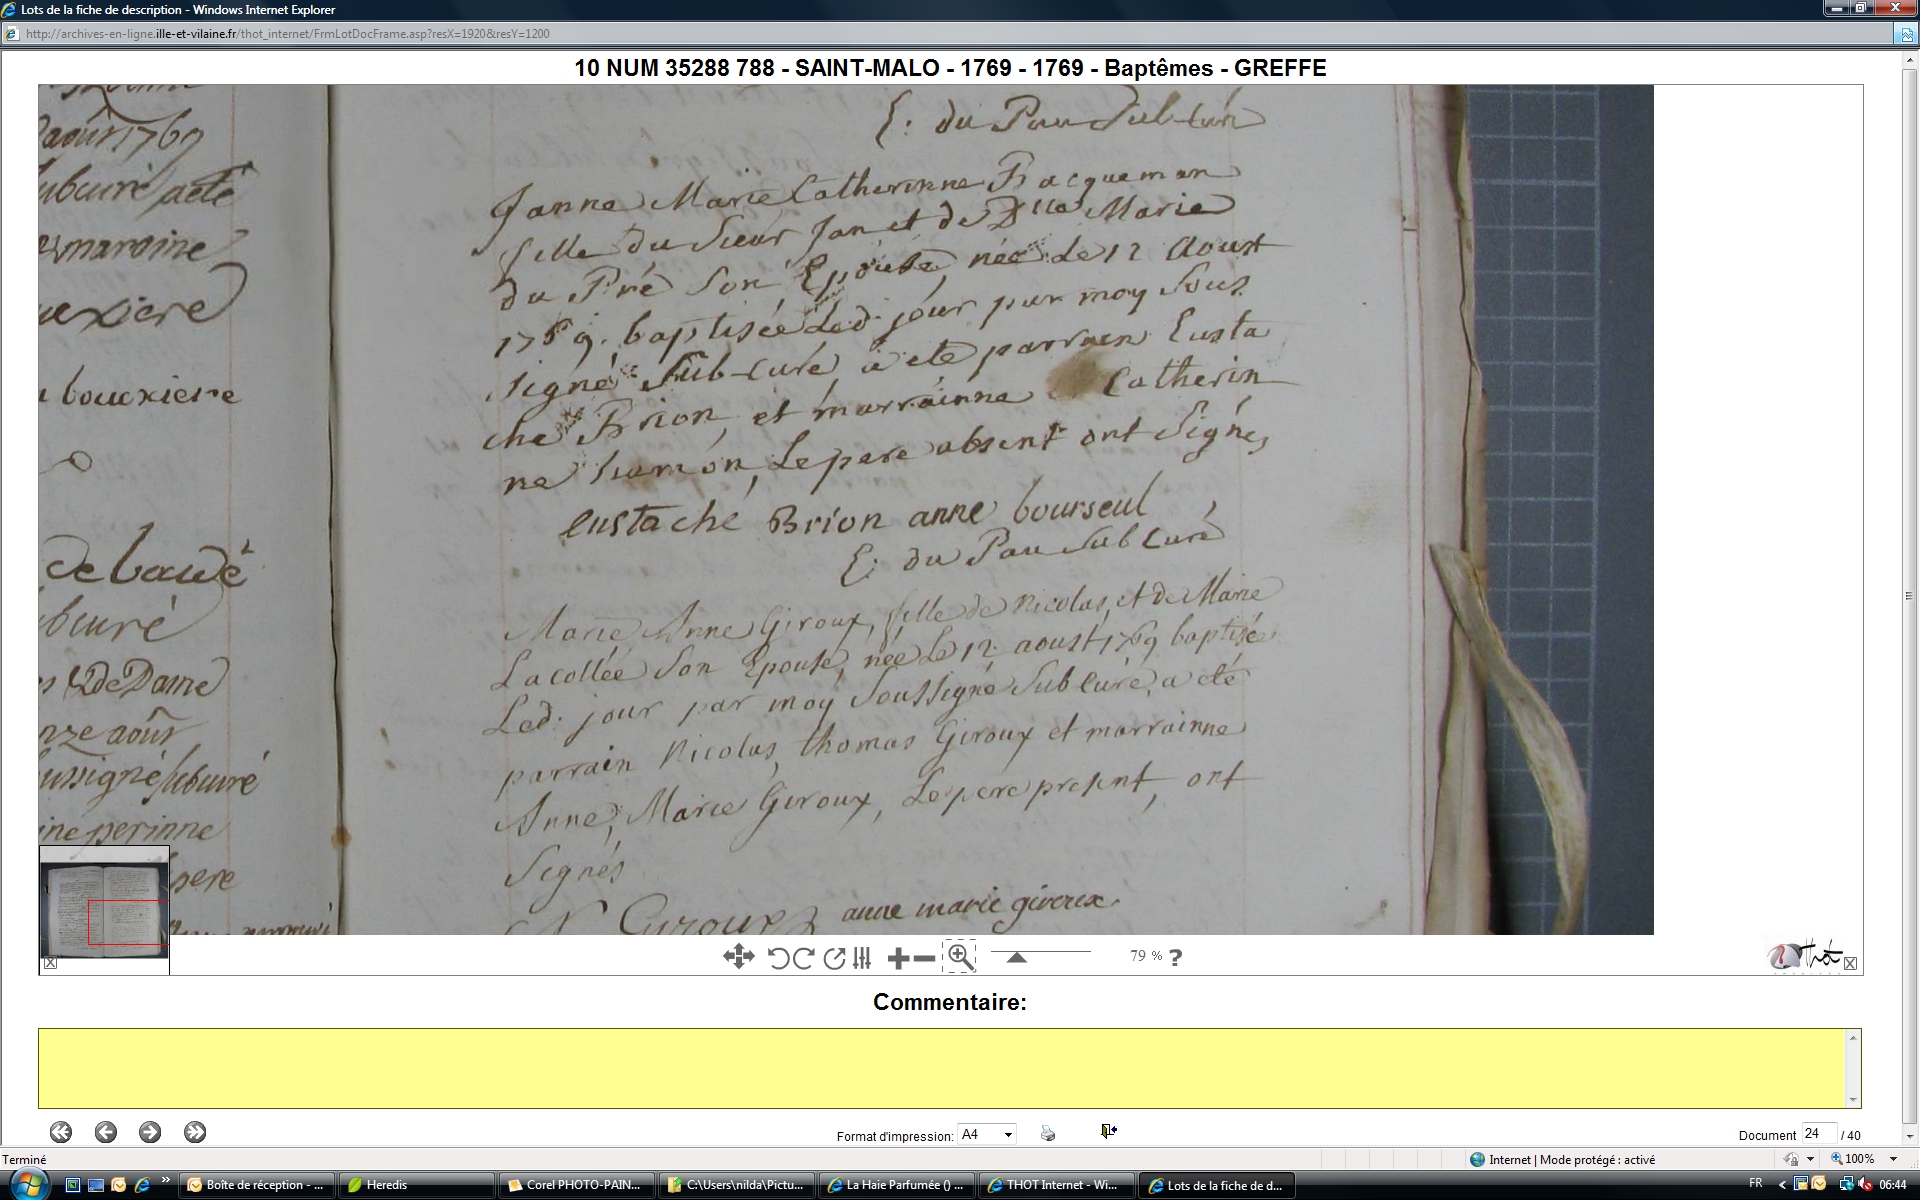 Lots de la fiche de description - Windows Internet Explorer
http://archives-en-ligne.ille-et-vilaine.fr/thot_internet/FrmLotDocFrame.asp?resX=1920&resY=1200
10 NUM 35288 788 - SAINT-MALO - 1769 - 1769 - Baptêmes - GREFFE
aoûr 1769
ubcuré a eté
maraine
uexiere
bouexiere
de bawdé
bcuré
s & De Dame
nze aoûr
ussigné subcuré
ine perinne
pere
E. du Pau Sub-curé
Janne Marie Catherinne Bacqueman
fille du Sieur Jan et de Dlle Marie
du Pré Son Epouse, née Le 12 Aoust
1769. baptisée Led. jour par moy Sous
Signé Sub-Curé a eté parrain Eusta
che Brion, et marrainne Catherin
ne hamon, Le pere absent ont Signés
eustache Brion anne bourseul
E. du Pau Sub Curé
Marie Anne Giroux, fille de Nicolas, et de Marie
Lacollée Son Epouse, née Le 12 aoust 1769 baptisé
Led. jour par moy Soussigné Sub Curé, a eté
parrain Nicolas, thomas Giroux et marrainne
Anne, Marie Giroux, Le pere present, ont
Signés
N Giroux anne marie giroux.
79 % ?
Thot
Commentaire:
Format d'impression: A4
Document 24 / 40
Terminé
Internet | Mode protégé : activé
100%
Boîte de réception - ...
Heredis
Corel PHOTO-PAIN...
C:\Users\nilda\Pictu...
La Haie Parfumée () ...
THOT Internet - Wi...
Lots de la fiche de d...
FR
06:44